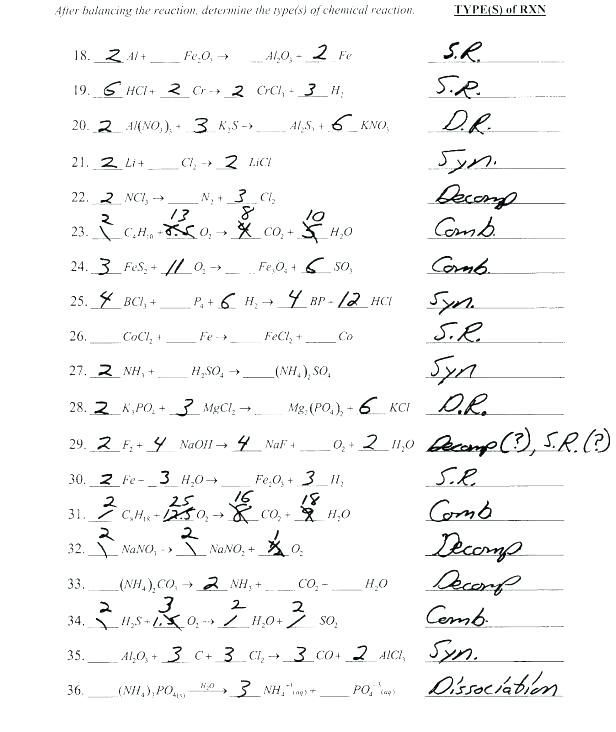 After balancing the reaction, determine the type(s) of chemical reaction. TYPE(S) of RXN
18. 2 Al + ___ Fe₂O₃ → ___ Al₂O₃ + 2 Fe S.R.
19. 6 HCl + 2 Cr → 2 CrCl₃ + 3 H₂ S.R.
20. 2 Al(NO₃)₃ + 3 K₂S → ___ Al₂S₃ + 6 KNO₃ D.R.
21. 2 Li + ___ Cl₂ → 2 LiCl Syn.
22. 2 NCl₃ → ___ N₂ + 3 Cl₂ Decomp
23. 2 C₄H₁₀ + 13 O₂ → 8 CO₂ + 10 H₂O Comb.
24. 3 FeS₂ + 11 O₂ → ___ Fe₃O₄ + 6 SO₂ Comb.
25. 4 BCl₃ + ___ P₄ + 6 H₂ → 4 BP + 12 HCl Syn.
26. ___ CoCl₂ + ___ Fe → ___ FeCl₂ + ___ Co S.R.
27. 2 NH₃ + ___ H₂SO₄ → ___ (NH₄)₂SO₄ Syn
28. 2 K₃PO₄ + 3 MgCl₂ → ___ Mg₃(PO₄)₂ + 6 KCl D.R.
29. 2 F₂ + 4 NaOH → 4 NaF + ___ O₂ + 2 H₂O Decomp(?), S.R.(?)
30. 2 Fe + 3 H₂O → ___ Fe₂O₃ + 3 H₂ S.R.
31. 2 C₈H₁₈ + 25 O₂ → 16 CO₂ + 18 H₂O Comb
32. 2 NaNO₃ → 2 NaNO₂ + 1 O₂ Decomp
33. ___ (NH₄)₂CO₃ → 2 NH₃ + ___ CO₂ + ___ H₂O Decomp
34. 2 H₂S + 3 O₂ → 2 H₂O + 2 SO₂ Comb.
35. ___ Al₂O₃ + 3 C + 3 Cl₂ → 3 CO + 2 AlCl₃ Syn.
36. ___ (NH₄)₃PO₄₍ₛ₎ H₂O → 3 NH₄⁺¹(aq) + ___ PO₄⁻³(aq) Dissociation